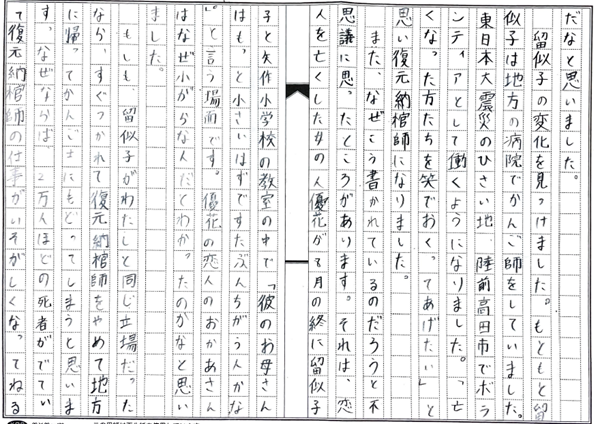 だなと思いました。
　留似子の変化を見つけました。もともと留
似子は地方の病院でかんご師をしていました。
東日本大震災のひさい地、陸前高田市でボラ
ンティアとして働くようになりました。「亡
くなった方たちを笑でおくってあげたい」と
思い復元納棺師になりました。
　また、なぜこう書かれているのだろうと不
思議に思ったところがあります。それは、恋
人を亡くした女の人優花が7月の終に留似子
子と矢作小学校の教室の中で「彼のお母さん
はもっと小さいはずですたぶんちがうんかな
」と言う場面です。優花の恋人のおかあさん
はなぜ小がらなんだとわかったのかなと思い
ました。
　もしも、留似子がわたしと同じ立場だった
なら、すぐつかれて復元納棺師をやめて地方
に帰ってかんごしにもどってしまうと思いま
す。なぜならば、2万人ほどの死者がでてい
て復元納棺師の仕事がいそがしくなってねる